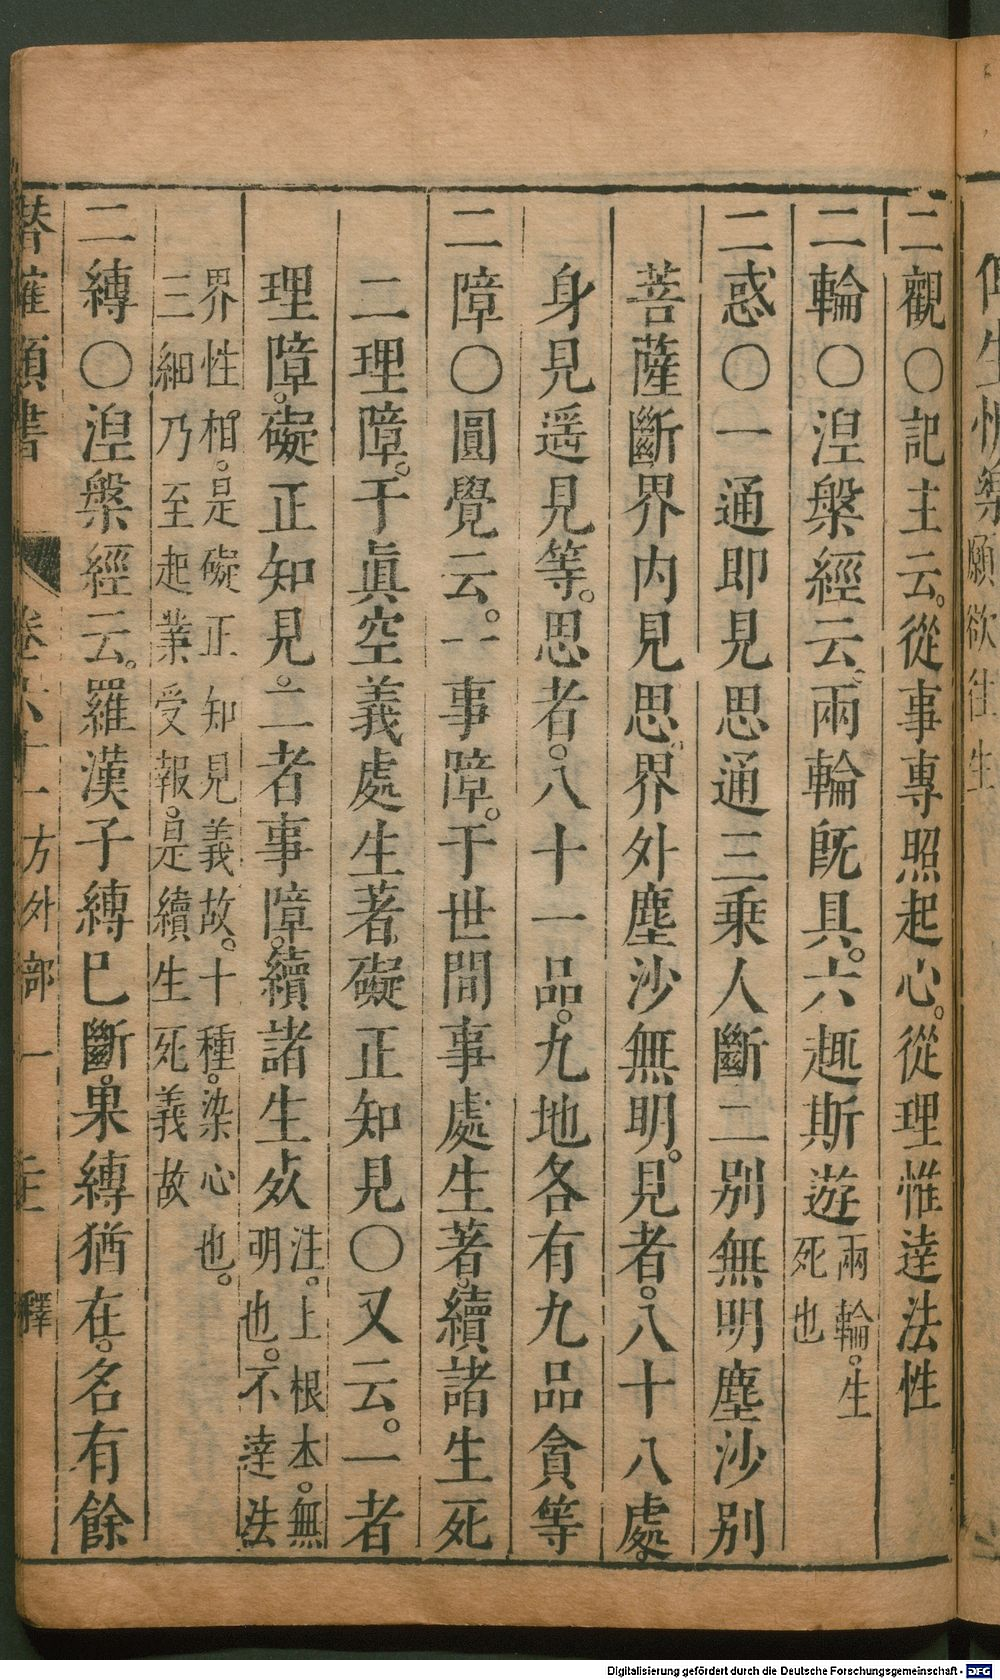 二觀〇記主云。從事專照起心。從理惟達法性
二輪〇湼槃經云。兩輪既具。六趣斯遊兩輪。生死也
二惑〇一通即見思通三乗人斷二別無明塵沙別
菩薩斷界内見思。界外塵沙無明。見者。八十八處。
身見邊見等。思者。八十一品。九地各有九品貪等
二障〇圓覺云。一事障。于世間事處生著。續諸生死
二理障。于眞空義處生著。礙正知見〇又云。一者
理障。礙正知見。二者事障。續諸生死注。上根本。無明也。不達法
界性相。是礙正知見義故。十種。染心也。
三細乃至起業受報。是續生死義故
二縛〇湼槃經云。羅漢子縛已斷。果縛猶在。名有餘
卷 方外部一 釋
願欲往生
Digitalisierung gefördert durch die Deutsche Forschungsgemeinschaft - DFG